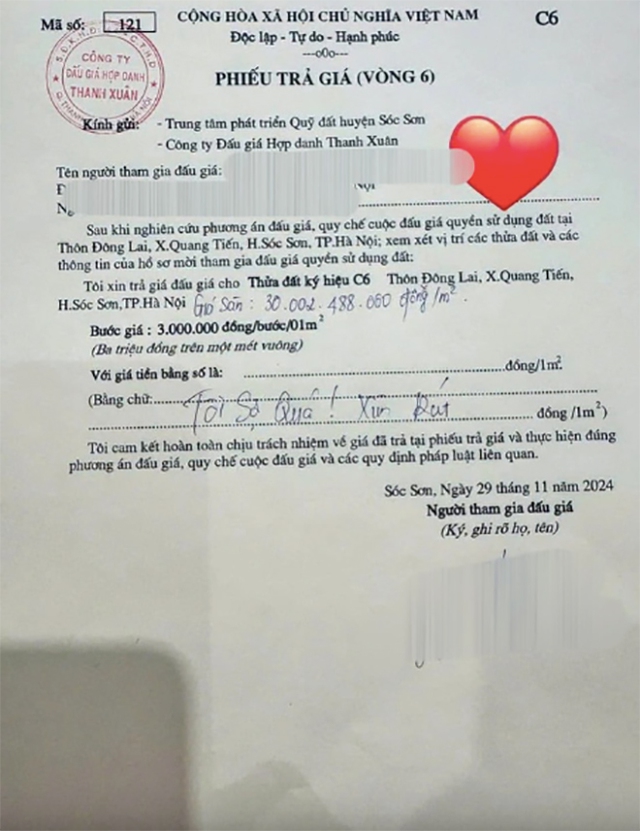 Mã số: 121
CỘNG HÒA XÃ HỘI CHỦ NGHĨA VIỆT NAM
C6
Độc lập - Tự do - Hạnh phúc
---o0o---
CÔNG TY
ĐẤU GIÁ HỢP DANH
THANH XUÂN
PHIẾU TRẢ GIÁ (VÒNG 6)
Kính gửi: - Trung tâm phát triển Quỹ đất huyện Sóc Sơn
- Công ty Đấu giá Hợp danh Thanh Xuân
Tên người tham gia đấu giá:
Sau khi nghiên cứu phương án đấu giá, quy chế cuộc đấu giá quyền sử dụng đất tại
Thôn Đông Lai, X.Quang Tiến, H.Sóc Sơn, TP.Hà Nội; xem xét vị trí các thửa đất và các
thông tin của hồ sơ mời tham gia đấu giá quyền sử dụng đất:
Tôi xin trả giá đấu giá cho Thửa đất ký hiệu C6 Thôn Đông Lai, X.Quang Tiến,
H.Sóc Sơn,TP.Hà Nội Giá Sàn : 30.002.488.000 đồng/m².
Bước giá : 3.000.000 đồng/bước/01m²
(Ba triệu đồng trên một mét vuông)
Với giá tiền bằng số là: đồng/1m².
(Bằng chữ: Tôi Sợ Quá! Xin Rút
đồng /1m²)
Tôi cam kết hoàn toàn chịu trách nhiệm về giá đã trả tại phiếu trả giá và thực hiện đúng
phương án đấu giá, quy chế cuộc đấu giá và các quy định pháp luật liên quan.
Sóc Sơn, Ngày 29 tháng 11 năm 2024
Người tham gia đấu giá
(Ký, ghi rõ họ, tên)